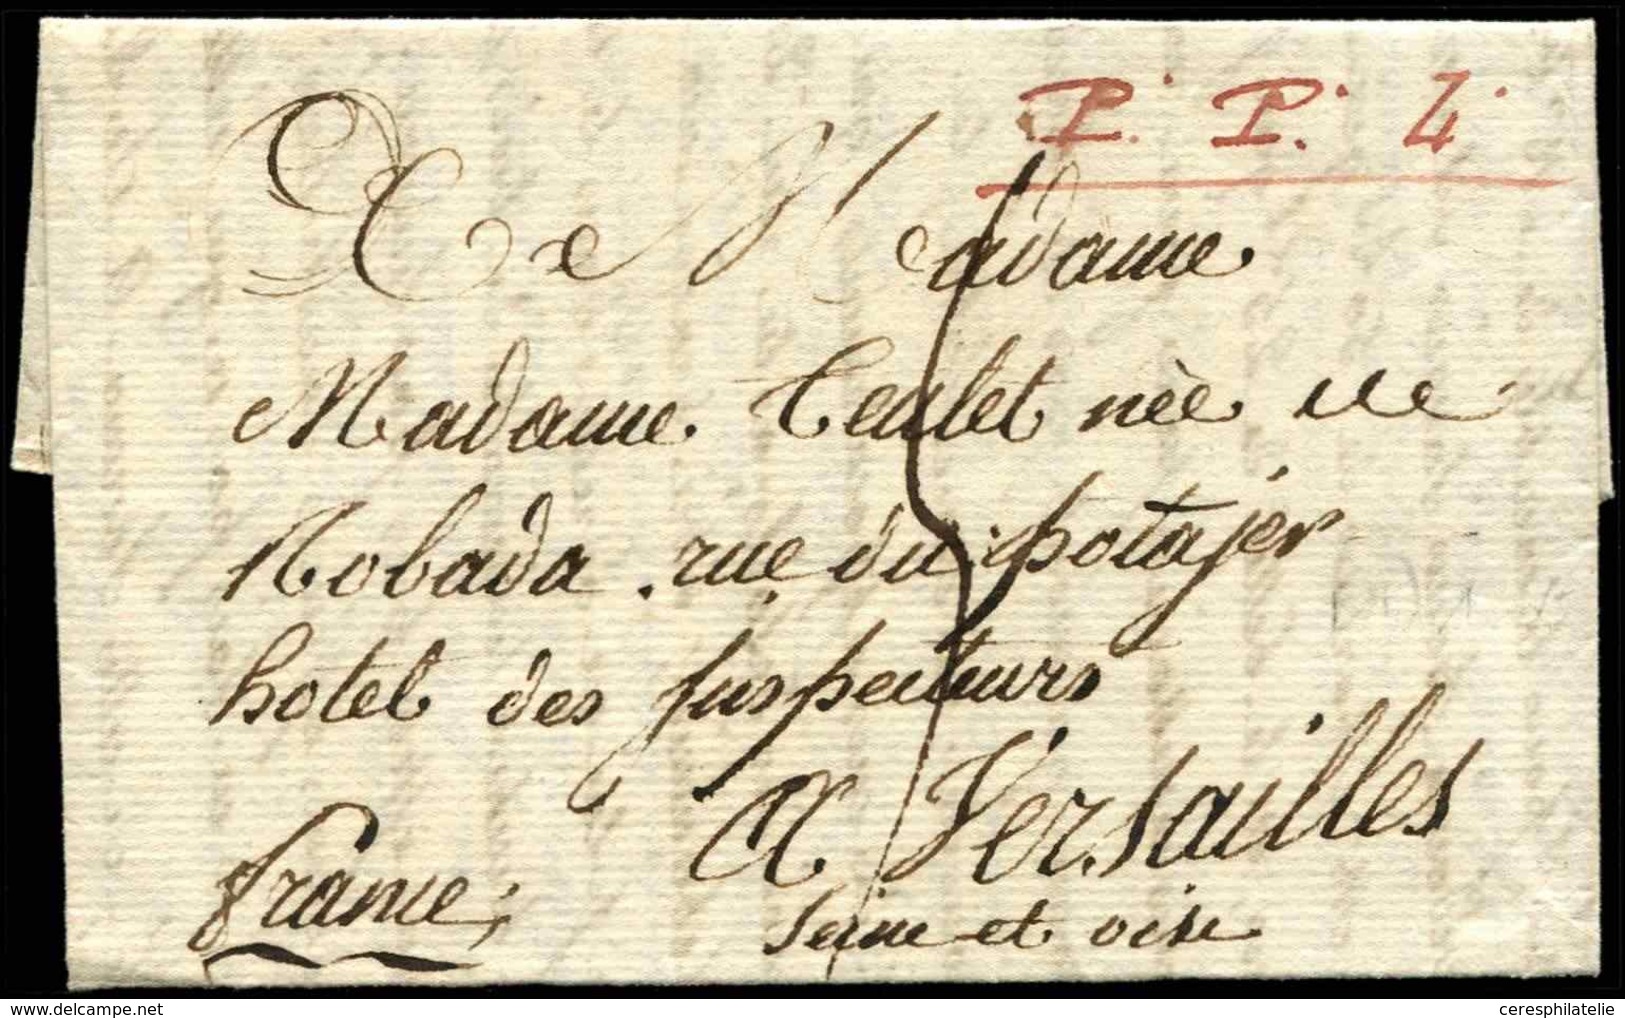 P. P. 4.
A Madame
Madame Teulet née de
Nobada. rue du potajer
hotel des Inspecteurs
A Versailles
france; Seine et oise
ceresphilatelie